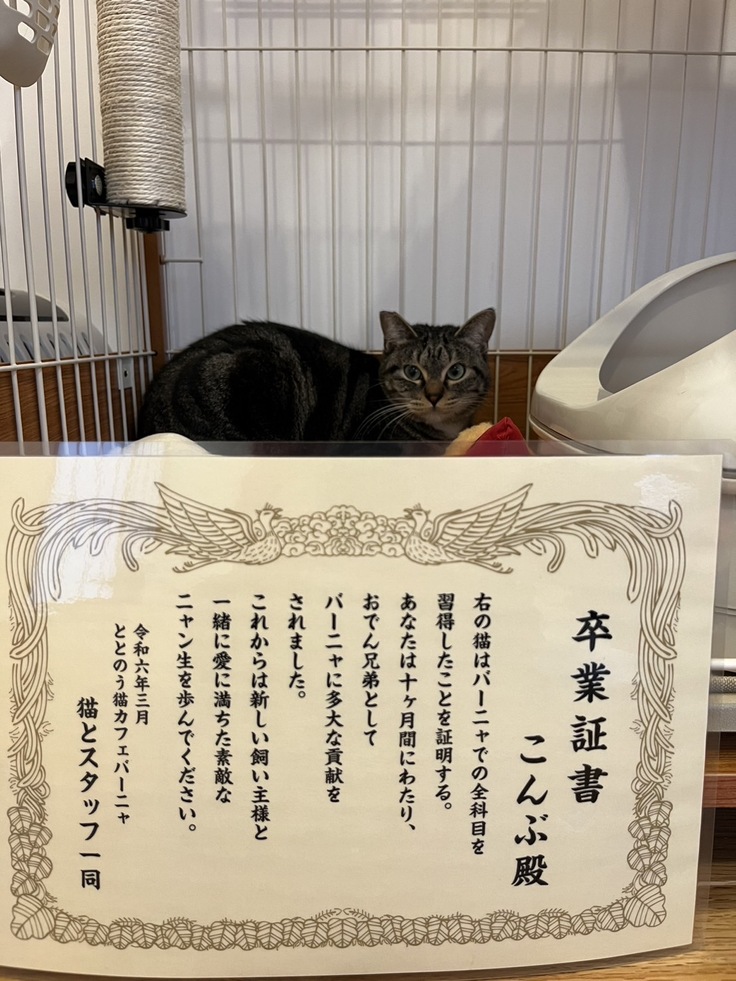 卒業証書
こんぶ殿
右の猫はバーニャでの全科目を
習得したことを証明する。
あなたは十ヶ月間にわたり、
おでん兄弟として
バーニャに多大な貢献を
されました。
これからは新しい飼い主様と
一緒に愛に満ちた素敵な
ニャン生を歩んでください。
令和六年三月
ととのう猫カフェバーニャ
猫とスタッフ一同